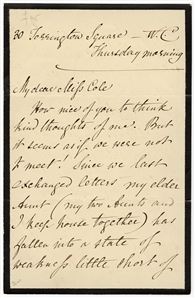 30 Torrington Square – W.C.
Thursday morning
My dear Miss Cole
How nice of you to think
kind thoughts of me. But
it seems as if we were not
to meet! Since we last
exchanged letters my elder
Aunt (my two Aunts and
I keep house together) has
fallen into a state of
weakness little short of